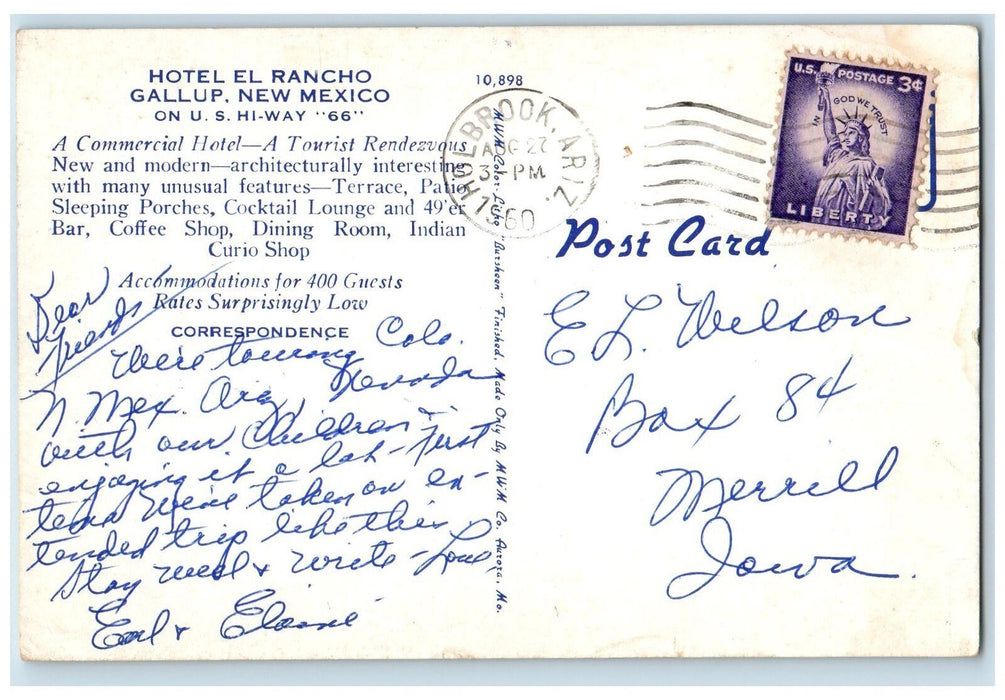 HOTEL EL RANCHO
GALLUP, NEW MEXICO
ON U. S. HI-WAY "66"
A Commercial Hotel—A Tourist Rendezvous
New and modern—architecturally interesting
with many unusual features—Terrace, Patio
Sleeping Porches, Cocktail Lounge and 49'er
Bar, Coffee Shop, Dining Room, Indian
Curio Shop
Accommodations for 400 Guests
Rates Surprisingly Low
CORRESPONDENCE
Dear
Friends
We're touring Colo.
N. Mex. Ariz, Nevada
with our Children &
enjoying it a lot - First
time We've taken on ex-
tended trip like this
Stay well & write - Love,
Earl & Elaine
10,898
M.W.M. Color-Litho "Larsheen" Finished, Made Only By M.W.M. Co. Aurora, Mo.
HOLBROOK, ARIZ.
AUG 27
3 PM
1960
U.S. POSTAGE 3¢
IN GOD WE TRUST
LIBERTY
Post Card
E L. Welson
Box 84
Merrill
Iowa.